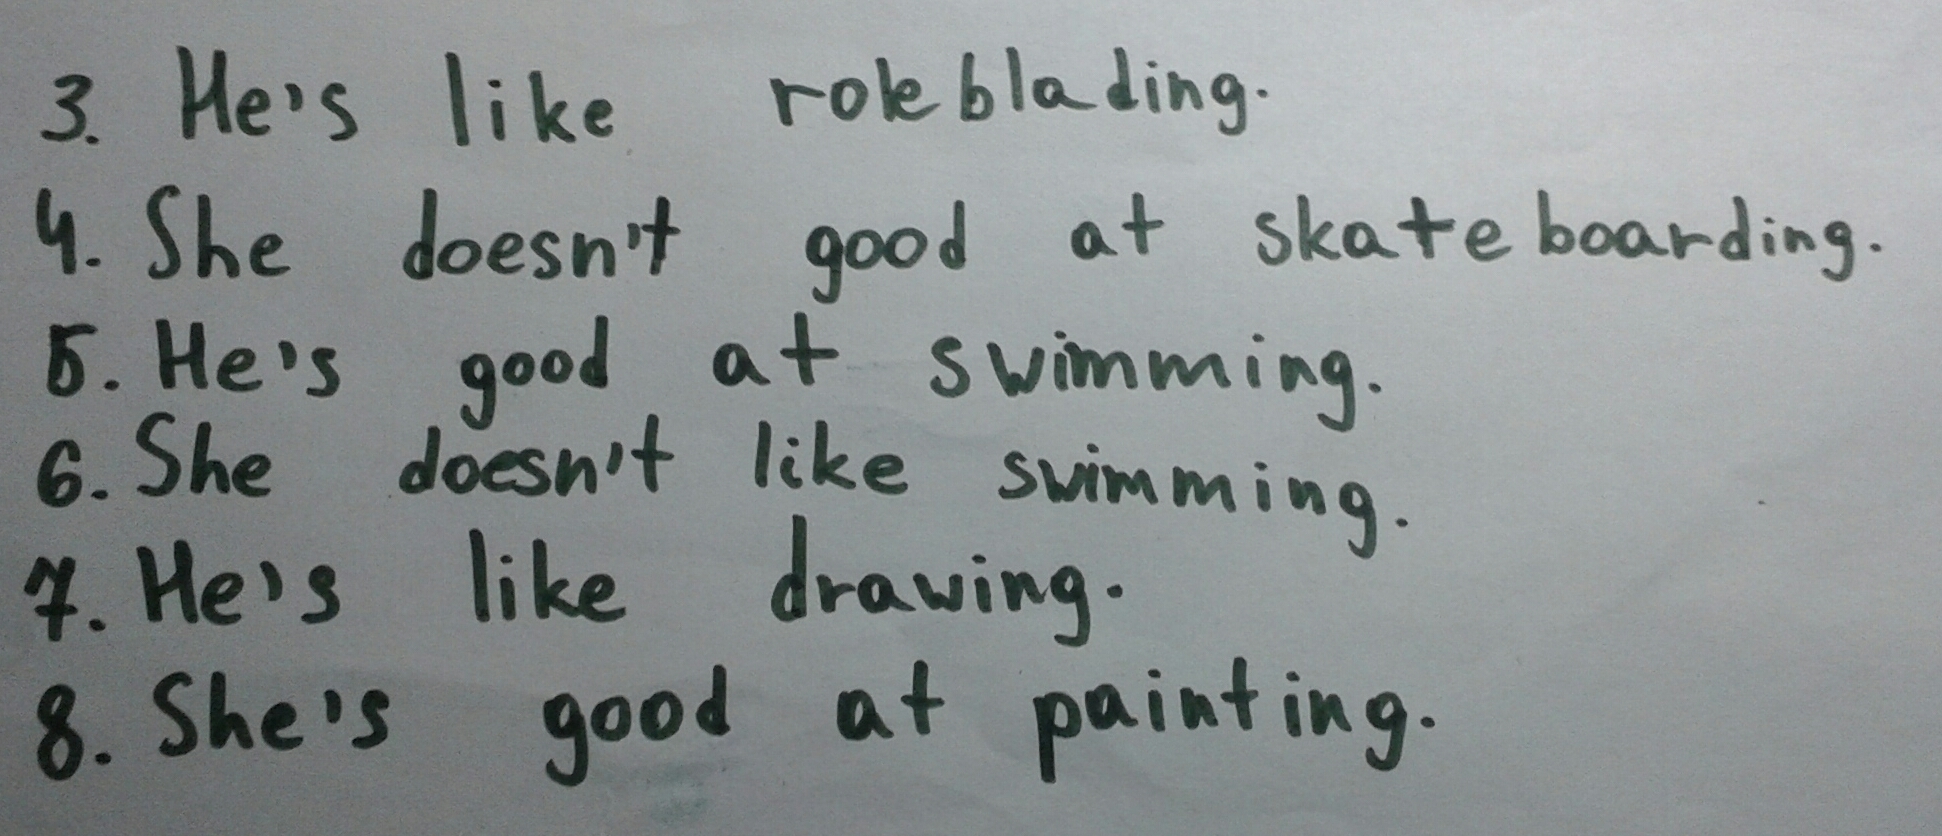 3. He's like roleblading.
4. She doesn't good at skateboarding.
5. He's good at swimming.
6. She doesn't like swimming.
7. He's like drawing.
8. She's good at painting.